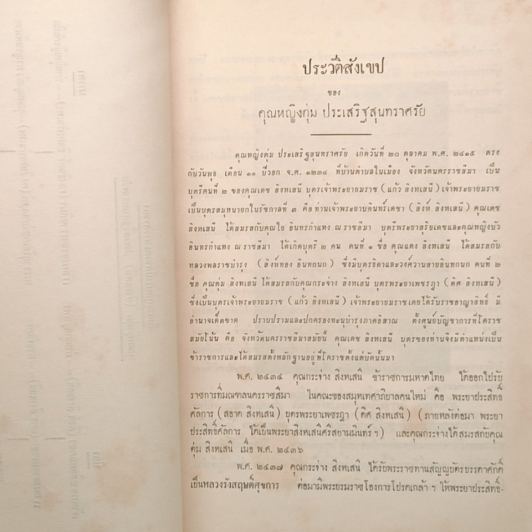 ประวัติสังเขป
ของ
คุณหญิงตุ่ม ประเสริฐสุนทราศรัย
คุณหญิงตุ่ม ประเสริฐสุนทราศรัย เกิดวันที่ ๒๐ ตุลาคม พ.ศ. ๒๔๑๕ ตรง
กับวันพุธ เดือน ๑๑ ปีวอก จ.ศ. ๑๒๓๔ ที่บ้านตำบลในเมือง จังหวัดนครราชสีมา เป็น
บุตรีคนที่ ๒ ของคุณเดช สิงหเสนี บุตรเจ้าพระยายมราช (แก้ว สิงหเสนี) เจ้าพระยายมราช
เป็นบุตรสมุหนายกในรัชกาลที่ ๓ คือท่านเจ้าพระยาบดินทร์เดชา (สิงห์ สิงหเสนี) คุณเดช
สิงหเสนี ได้สมรสกับคุณใจ อินทรกำแหง ณ ราชสีมา บุตรีพระยาสุริยเดชและคุณหญิงบัว
อินทรกำแหง ณ ราชสีมา ได้เกิดบุตรี ๒ คน คนที่ ๑ ชื่อ คุณแดง สิงหเสนี ได้สมรสกับ
หลวงพลราชบำรุง (สิงห์ทอง อินทกนก) ซึ่งมีบุตรธิดาและวงศ์วานสายอินทกนก คนที่ ๒
ชื่อ คุณตุ่ม สิงหเสนี ได้สมรสกับคุณกระจ่าง สิงหเสนี บุตรพระยาเพชรฎา (ดิศ สิงหเสนี)
ซึ่งเป็นบุตรเจ้าพระยายมราช (แก้ว สิงหเสนี) เจ้าพระยายมราชเคยได้รับราชอาญาสิทธิ์ มี
อำนาจเด็ดขาด ปราบปรามและปกครองทะนุบำรุงภาคอิสาณ ตั้งศูนย์บัญชาการที่โคราช
สมัยโน้น คือ จังหวัดนครราชสีมาสมัยนี้ คุณเดช สิงหเสนี บุตรของท่านจึงมีตำแหน่งเป็น
ข้าราชการและได้สมรสตั้งหลักฐานอยู่ที่โคราชตั้งแต่บัดนั้นมา
พ.ศ. ๒๔๓๔ คุณกระจ่าง สิงหเสนี ข้าราชการมหาดไทย ได้ออกไปรับ
ราชการที่มณฑลนครราชสีมา ในคณะของสมุหเทศาภิบาลคนใหม่ คือ พระยาประสิทธิ์
ศัลการ (สอาด สิงหเสนี) บุตรพระยาเพชรฎา (ดิศ สิงหเสนี) (ภายหลังต่อมา พระยา
ประสิทธิ์ศัลการ ได้เป็นพระยาสิงหเสนีศรีสยามนินทร์ ฯ) และคุณกระจ่างได้สมรสกับคุณ
ตุ่ม สิงหเสนี เมื่อ พ.ศ. ๒๔๓๖
พ.ศ. ๒๔๓๗ คุณกระจ่าง สิงหเสนี ได้รับพระราชทานสัญญาบัตรบรรดาศักดิ์
เป็นหลวงรังสฤษดิ์ศุขการ ต่อมามีพระบรมราชโองการโปรดเกล้า ฯ ให้พระยาประสิทธิ์